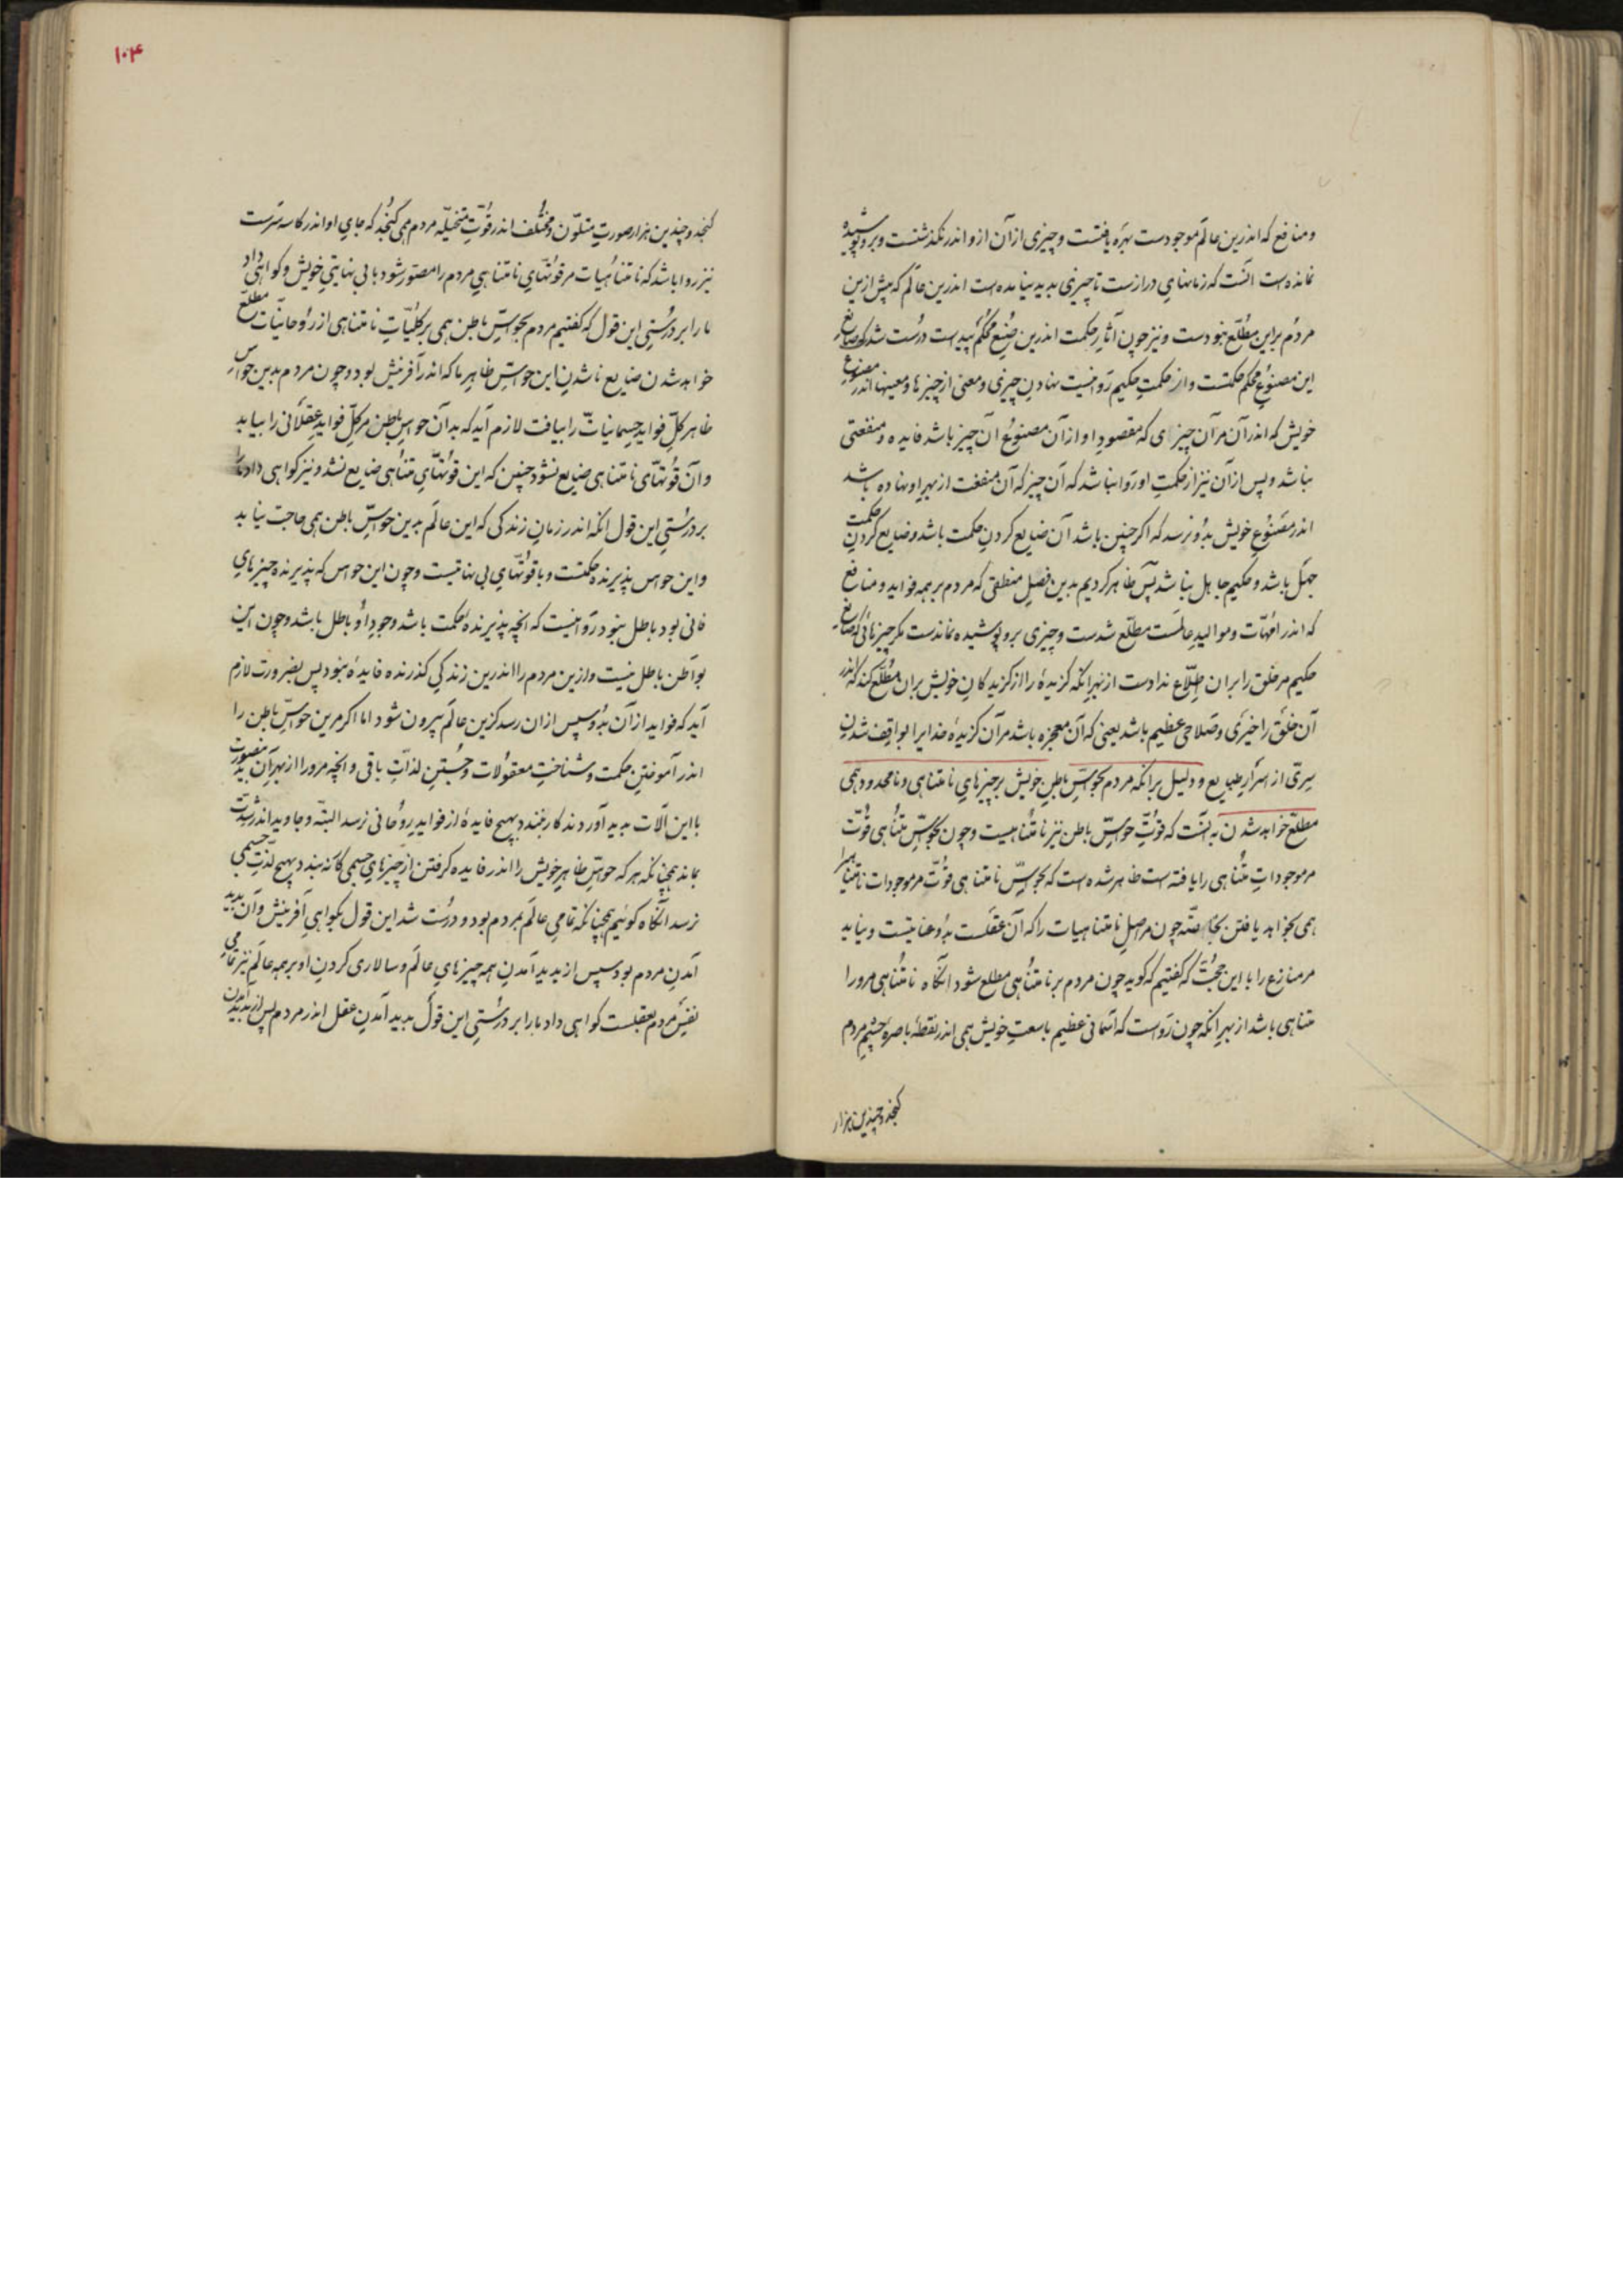 و منافع که اندرین عالم موجودست بهره یافتست و چیزی از آن ازو اندر نگذشتست و برو پوشیده
نمانده است آنست که زمانهای درازست تا چیزی بدید نیامده است اندرین عالم که پیش ازین
مردم براین مطّلع نبودست و نیز چون آثار حکمت اندرین صُنع محکم پیداست درست شد که صانع
این مصنوع محکم حکتست و از حکمتِ حکیم روا نیست نهادنِ چیزی و معنی از چیزها و معنیها اندر مصنوع
خویش که اندر آن مر آن چیز ی که مقصود او از آن مصنوع آن چیز باشد فایده و منفعتی
نباشد و پس از آن نیز از حکمتِ او روا نباشد که آن چیز که آن منفعت از بهر او نهاده باشد
اندر مصنوعِ خویش بدو نرسد که اگر چنین باشد آن ضایع کردنِ حکمت باشد و ضایع کردنِ حکمت
جهل باشد و حکیم جاهل نباشد پس ظاهر کردیم بدین فصلِ منطقی که مردم بر همه فواید و منافع
که اندر امّهات و موالیدِ عالمست مطّلع شدست و چیزی برو پوشیده نماندست مگر چیزهائی که صانع
حکیم مر خلق را بران اطّلاع ندادست از بهر انکه گزیدهٔ را از گزیدگان خویش بران مطّلع کند که اندر
آن خلق را خیری و صلاحی عظیم باشد یعنی که آن معجزه باشد مر آن گزیدهٔ خدایرا بواقف شدن
سِرّی از اسرارِ طبایع و دلیل برانکه مردم بحواسِّ باطنِ خویش بر چیزهایِ نامتناهی و نامحدود همی
مطلّع خواهد شدن به آنست که قوّتِ حواسِّ باطن نیز نامتناهیست و چون بحواسِّ متناهی قوّت
مر موجوداتِ متناهی را یافته است ظاهر شده است که بحواسِّ نامتناهی قوّت مر موجودات نامتناهی را
همی بخواهد یافتن بخاصّه چون مر اصلِ نامتناهیات را که آن عقلست بدو عنایتست و نباید
مر منازع را با این حجّت که گفتیم که گوید چون مردم بر نامتناهی مطلع شود انگاه نامتناهی مرورا
متناهی باشد از بهرِ انکه چون رواست که آسمانی عظیم با سعتِ خویش همی اندر نقطهٔ باصرهٔ چشمِ مردم
گنجد و چندین هزار
۱۰۴
گنجد و چندین هزار صورتِ متلوّن و مختلف اندر قوّتِ متخیّلهٔ مردم همی گنجد که جایِ او اندر کاسه سرست
نیز روا باشد که نامتناهیات مر قوّتهایِ نامتناهیِ مردم را مصوّر شود با بی نهایتیِ خویش و گواهی داد
مارا بر درستیِ این قول که گفتیم مردم بحواسِّ باطن همی بر کلیّاتِ نامتناهی از روحانیّات مطلّع
خواهد شدن ضایع ناشدنِ این حواسِّ ظاهرِ ما که اندر آفرینش بود و چون مردم بدین حواسِ
ظاهر کلِّ فوایدِ جسمانیات را بیافت لازم آید که بدآن حواسِ باطن مر کلِّ فوایدِ عقلانی را بیابد
و آن قوّتهای نامتناهی ضایع نشود چنین که این قوّتهایِ متناهی ضایع نشد و نیز گواهی داد مارا
بر درستیِ این قول انکه اندر زمانِ زندگی که این عالم بدین حواسِّ باطن همی حاجت نیاید
و این حواس پذیرندهٔ حکمتست و با قوّتهایِ بی نهایتست و چون این حواس که پذیرنده چیزهایِ
فانی بود باطل نبود روا نیست که انچه پذیرندهٔ حکمت باشد وجودِ او باطل باشد و چون این
بواطن باطل نیست و ازین مردم را اندرین زندگیِ گذرنده فایدهٔ نبود پس بضرورت لازم
آید که فواید از آن بدو سپس ازان رسد کزین عالم بیرون شود اما اگر مرین حواسِّ باطن را
اندر آموختنِ حکمت و شناختِ معقولات و جُستنِ لذّاتِ باقی و انچه مرورا از بهرِ آن بدین صورت
با این آلات بدید آوردند کار نبندد بهیچ فایدهٔ از فوایدِ روحانی نرسد البتّه و جاوید اندر شدّت
بماند همچنانکه هر که حواسِّ ظاهرِ خویش را اندر فایده گرفتن از چیزهایِ جسمی کار نبندد بهیچ لذّتِ جسمی
نرسد آنگاه گوئیم همچنانکه تمامیِ عالم بمردم بود و درست شد این قول بگواهیِ آفرینش و آن بدید
آمدنِ مردم بود سپس از بدید آمدنِ همه چیزهایِ عالم و سالاری کردنِ او بر همه عالم نیز تمامی
نفسِ مردم بعقلست گواهی داد مارا بر درستیِ این قول بدید آمدنِ عقل اندر مردم پس از بدید آمدن